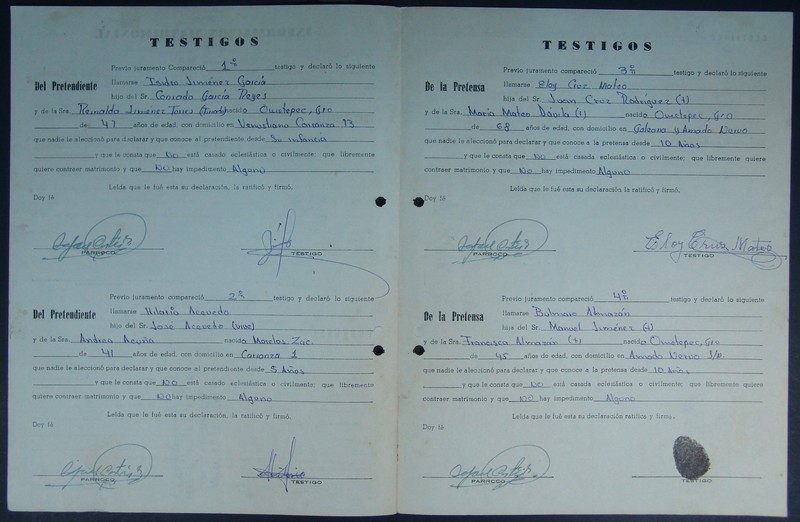 TESTIGOS
Previo juramento Compareció 1º testigo y declaró lo siguiente
Del Pretendiente
llamarse Isidro Jiménez García
hijo del Sr. Conrado García Reyes
y de la Sra. Reinalda Jiménez nacido Ometepec, Gro
de 47 años de edad, con domicilio en Venustiano Carranza 13
que nadie le aleccionó para declarar y que conoce al pretendiente desde Su infancia
y que le consta que NO está casado eclesiástica o civilmente; que libremente
quiere contraer matrimonio y que NO hay impedimento Alguno
Leída que le fué esta su declaración, la ratificó y firmó.
Doy fé
Rafael Ortiz
PARROCO
TESTIGO
Previo juramento compareció 2º testigo y declaró lo siguiente
Del Pretendiente
llamarse Hilario Acevedo
hijo del Sr. José Acevedo (vive)
y de la Sra. Andrea Acuña nacido Morelos Zac.
de 41 años de edad, con domicilio en Carranza 1
que nadie le aleccionó para declarar y que conoce al pretendiente desde 5 Años
y que le consta que NO está casado eclesiástica o civilmente; que libremente
quiere contraer matrimonio y que NO hay impedimento Alguno
Leída que le fué esta su declaración, la ratificó y firmó.
Doy fé
Rafael Ortiz
PARROCO
TESTIGO
TESTIGOS
Previo juramento compareció 3º testigo y declaró lo siguiente
De la Pretensa
llamarse Eloy Cruz Mateo
hijo del Sr. Juan Cruz Rodríguez (+)
y de la Sra. María Mateo Dávila (+) nacido Ometepec, Gro
de 68 años de edad, con domicilio en Galeana y Amado Nervo
que nadie le aleccionó para declarar y que conoce a la pretensa desde 10 Años
y que le consta que NO está casada eclesiástica o civilmente; que libremente quiere
contraer matrimonio y que NO hay impedimento Alguno
Leída que le fué esta su declaración, la ratificó y firmó.
Doy fé
Rafael Ortiz
PARROCO
Eloy Cruz Mateo
TESTIGO
Previo juramento compareció 4º testigo y declaró lo siguiente
De la Pretensa
llamarse Bulmaro Almazán
hijo del Sr. Manuel Jiménez (+)
y de la Sra. Francisca Almazán (+) nacido Ometepec, Gro
de 45 años de edad, con domicilio en Amado Nervo S/N.
que nadie le aleccionó para declarar y que conoce a la pretensa desde 10 Años
y que le consta que NO está casada eclesiástica o civilmente; que libremente quiere
contraer matrimonio y que NO hay impedimento Alguno
Leída que le fué esta su declaración ratificó y firma.
Doy fé
Rafael Ortiz
PARROCO
TESTIGO